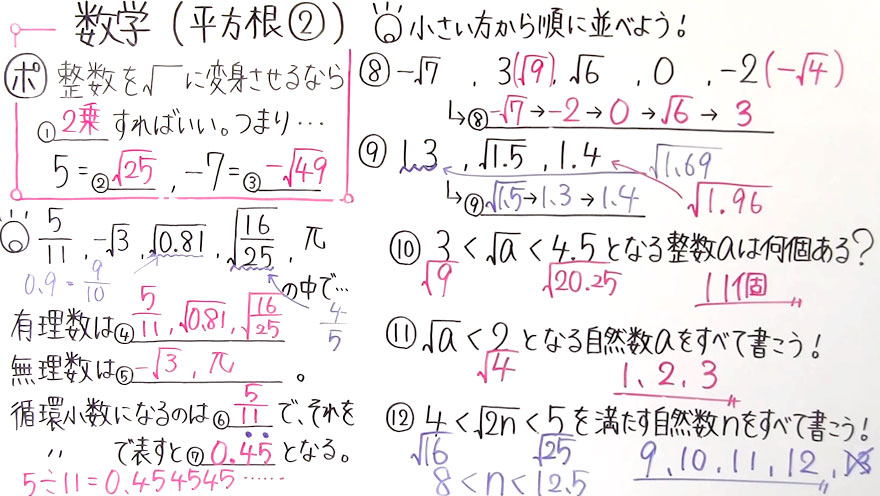 数学（平方根②）
ポ 整数を√ に変身させるなら
①2乗 すればいい。つまり…
5=②√25 , -7=③-√49
5/11, -√3, √0.81, √16/25, π
0.9=9/10
の中で…
4/5
有理数は④5/11, √0.81, √16/25
無理数は⑤-√3, π 。
循環小数になるのは⑥5/11で、それを
〃 で表すと⑦0.4̇5̇となる。
5÷11=0.454545……
小さい方から順に並べよう！
⑧-√7 , 3(√9), √6 , 0 , -2(-√4)
↳⑧-√7→-2→0→√6→ 3
⑨ 1.3 , √1.5 , 1.4 √1.69
↳⑨√1.5→1.3→1.4 √1.96
⑩ 3<√a<4.5となる整数aは何個ある？
√9 √20.25 11個
⑪√a<2 となる自然数aをすべて書こう！
√4 1, 2, 3
⑫ 4<√2n<5を満たす自然数nをすべて書こう！
√16 √25 9, 10, 11, 12,
8<n<12.5